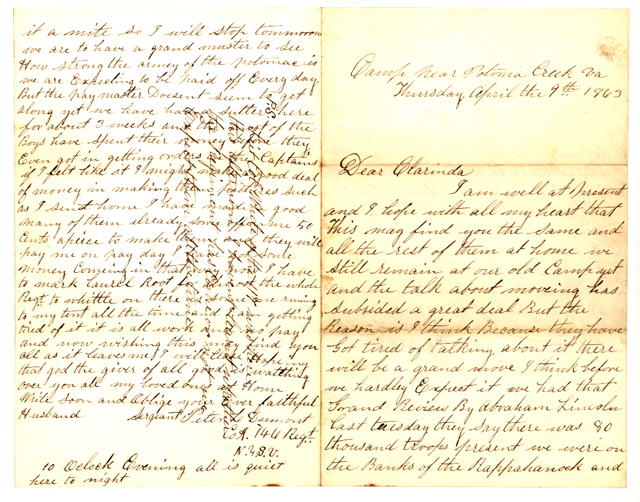 Camp Near Potomia Creek Va
Thursday April the 9th 1863
Dear Clarinda
I am well at Present
and I hope with all my heart that
this may find you the same and
all the rest of them at home we
still remain at our old Camp yet
and the talk about moveing has
Subsided a great deal But the
Reason is I think Because they have
Got tired of talking about it there
will be a grand move I think before
we hardly Expect it we had that
Grand Review By Abraham Lincoln
Last tuesday they say there was 80
thousand troops present we were on
the Banks of the Rappahanock and
it a mite so I will stop tommorow
we are to have a grand muster to see
How strong the armey of the potomac is
we are Expecting to be paid off Every day
But the pay master Doesent seem to get
along yet we have had a sutter here
for about 3 weeks and the most of the
Boys have spent their money before they
Even got in getting orders the Captains
if I felt like it I might make a good deal
of money in making them such
as I sent home I have made a good
many of them already some offer me 50
Cents apiece to make them and they will
pay me on pay day I some
money Comeing in that way I have
to mark Laurel Root for the whole
Regt to whittle on there is some one runing
to my tent all the time and I am getting
tired of it it is all work and no pay
and now wishing this may find you
all as it leaves me I will close Hopeing
that god the giver of all good is watching
over you all my loved ones at Home
Write Soon and Oblige your Ever faithful
Husband Sergeant Peter Dumont
Co K. 146 Regt
N.Y.S.V.
10 Oclock Evening all is quiet
here to night